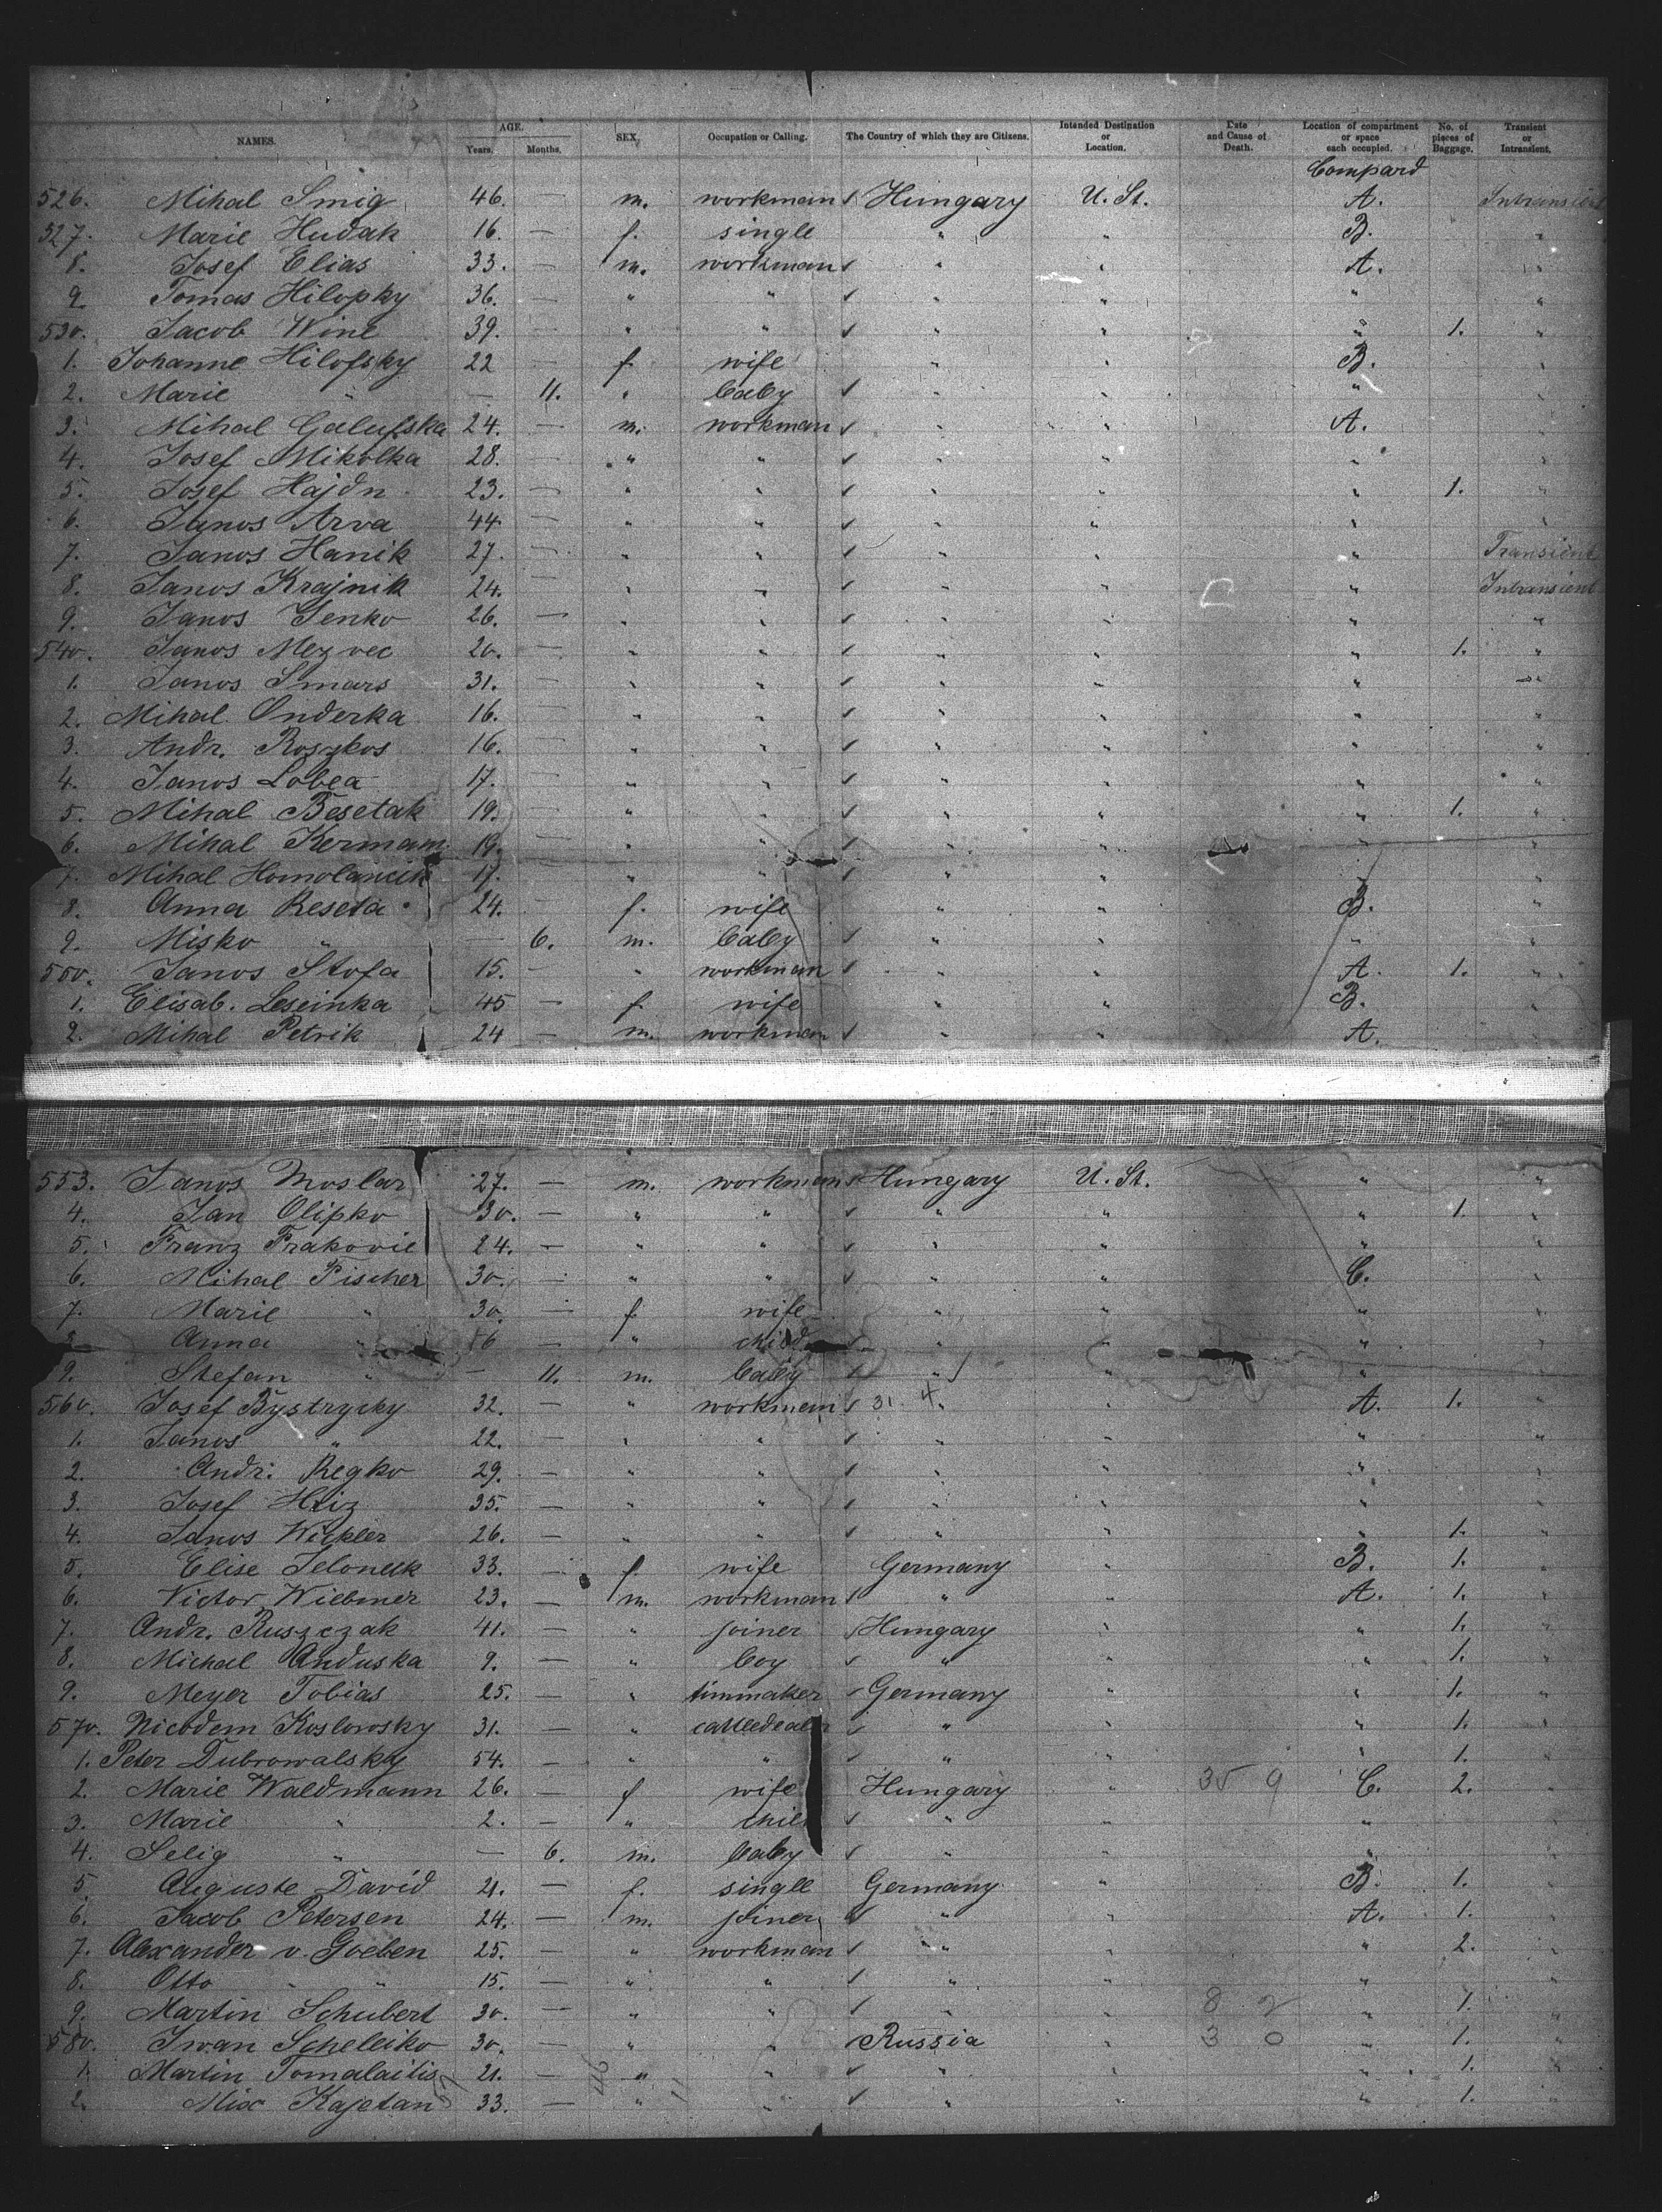 NAMES. AGE. Years. Months. SEX. Occupation or Calling. The Country of which they are Citizens. Intended Destination or Location. Date and Cause of Death. Location of compartment or space each occupied. No. of pieces of Baggage. Transient or Intransient.
Compard
526. Mihal Smig 46. — m. workman ✓ Hungary U. St. A. Intransient
527. Marie Hudak 16. — f. single " " B. "
8. Josef Elias 33. — m. workman ✓ " " A. "
9. Tomas Hilopky 36. — " " ✓ " " " "
530. Jacob Wine 39. — " " ✓ " " " 1. "
1. Johanne Hilofsky 22 — f. wife " " B. "
2. Marie " — 11. " baby ✓ " " " "
3. Mihal Galufska 24. — m. workman ✓ " " A. "
4. Josef Mikolka 28. — " " ✓ " " " "
5. Josef Hajdn 23. — " " ✓ " " " 1. "
6. Janos Arva 44. — " " ✓ " " " "
7. Janos Hanik 27. — " " ✓ " " " Transient
8. Janos Krajnik 24. — " " ✓ " " " Intransient
9. Janos Senko 26. — " " ✓ " " " "
540. Janos Mezvec 20. — " " ✓ " " " 1. "
1. Janos Smars 31. — " " ✓ " " " "
2. Mihal Onderka 16. — " " ✓ " " " "
3. Andr. Roszkos 16. — " " ✓ " " " "
4. Janos Lobea 17. — " " ✓ " " " "
5. Mihal Besetak 19. — " " ✓ " " " 1. "
6. Mihal Kermam 19. — " " ✓ " " " "
7. Mihal Homolancik 17. — " " ✓ " " " "
8. Anna Reseta 24. — f. wife " " B. "
9. Misko " — 6. m. baby ✓ " " " "
550. Janos Stofa 15. — " workman ✓ " " A. 1. "
1. Elisab. Leseinka 45 — f. wife " " B. "
2. Mihal Petrik 24 — m. workman ✓ " " A. "
553. Janos Moslar 27. — m. workman ✓ Hungary U. St. " "
4. Jan Olipko 30. — " " ✓ " " " 1. "
5. Franz Frakovic 24. — " " ✓ " " " "
6. Mihal Fischer 30. — " " ✓ " " C. "
7. Marie " 30. — f. wife " " " "
8. Anna " 6 — " child ✓ " " " "
9. Stefan " — 11. m. baby ✓ " " " "
560. Josef Bystrycky 32. — " workman ✓ 31 4 " " A. 1. "
1. Janos " 22. — " " ✓ " " " "
2. Andr. Regko 29. — " " ✓ " " " "
3. Josef Hriz 35. — " " ✓ " " " "
4. Janos Wickler 26. — " " ✓ " " " 1. "
5. Elise Jelonek 33. — f. wife Germany " B. 1. "
6. Victor Wiebmer 23. — m. workman ✓ " " A. 1. "
7. Andr. Ruszczak 41. — " joiner ✓ Hungary " " 1. "
8. Michael Anduska 9. — " boy ✓ " " " 1. "
9. Meyer Tobias 25. — " tinmaker ✓ Germany " " 1. "
570. Nicodem Koslowsky 31. — " cattledealer ✓ " " " 1. "
1. Peter Dubrowalsky 54. — " " ✓ " " " 1. "
2. Marie Waldmann 26. — f wife Hungary " 35 9 C. 2. "
3. Marie " 2. — " chil ✓ " " " "
4. Selig " — 6. m. baby ✓ " " " "
5. Auguste David 21. — f. single Germany " B. 1. "
6. Jacob Petersen 24. — m. joiner ✓ " " A. 1. "
7. Alexander v. Goeben 25. — " workman ✓ " " " 2. "
8. Otto " " 15. — " " ✓ " " " "
9. Martin Schubert 30. — " " ✓ " " 8 2 " 1. "
580. Iwan Scheleiko 30. — " " ✓ Russia " 3 0 " 1. "
1. Martin Tomalaitis 21. — " " ✓ " " " 1. "
2. Mix Kajetan 33. — " " ✓ " " " 1. "